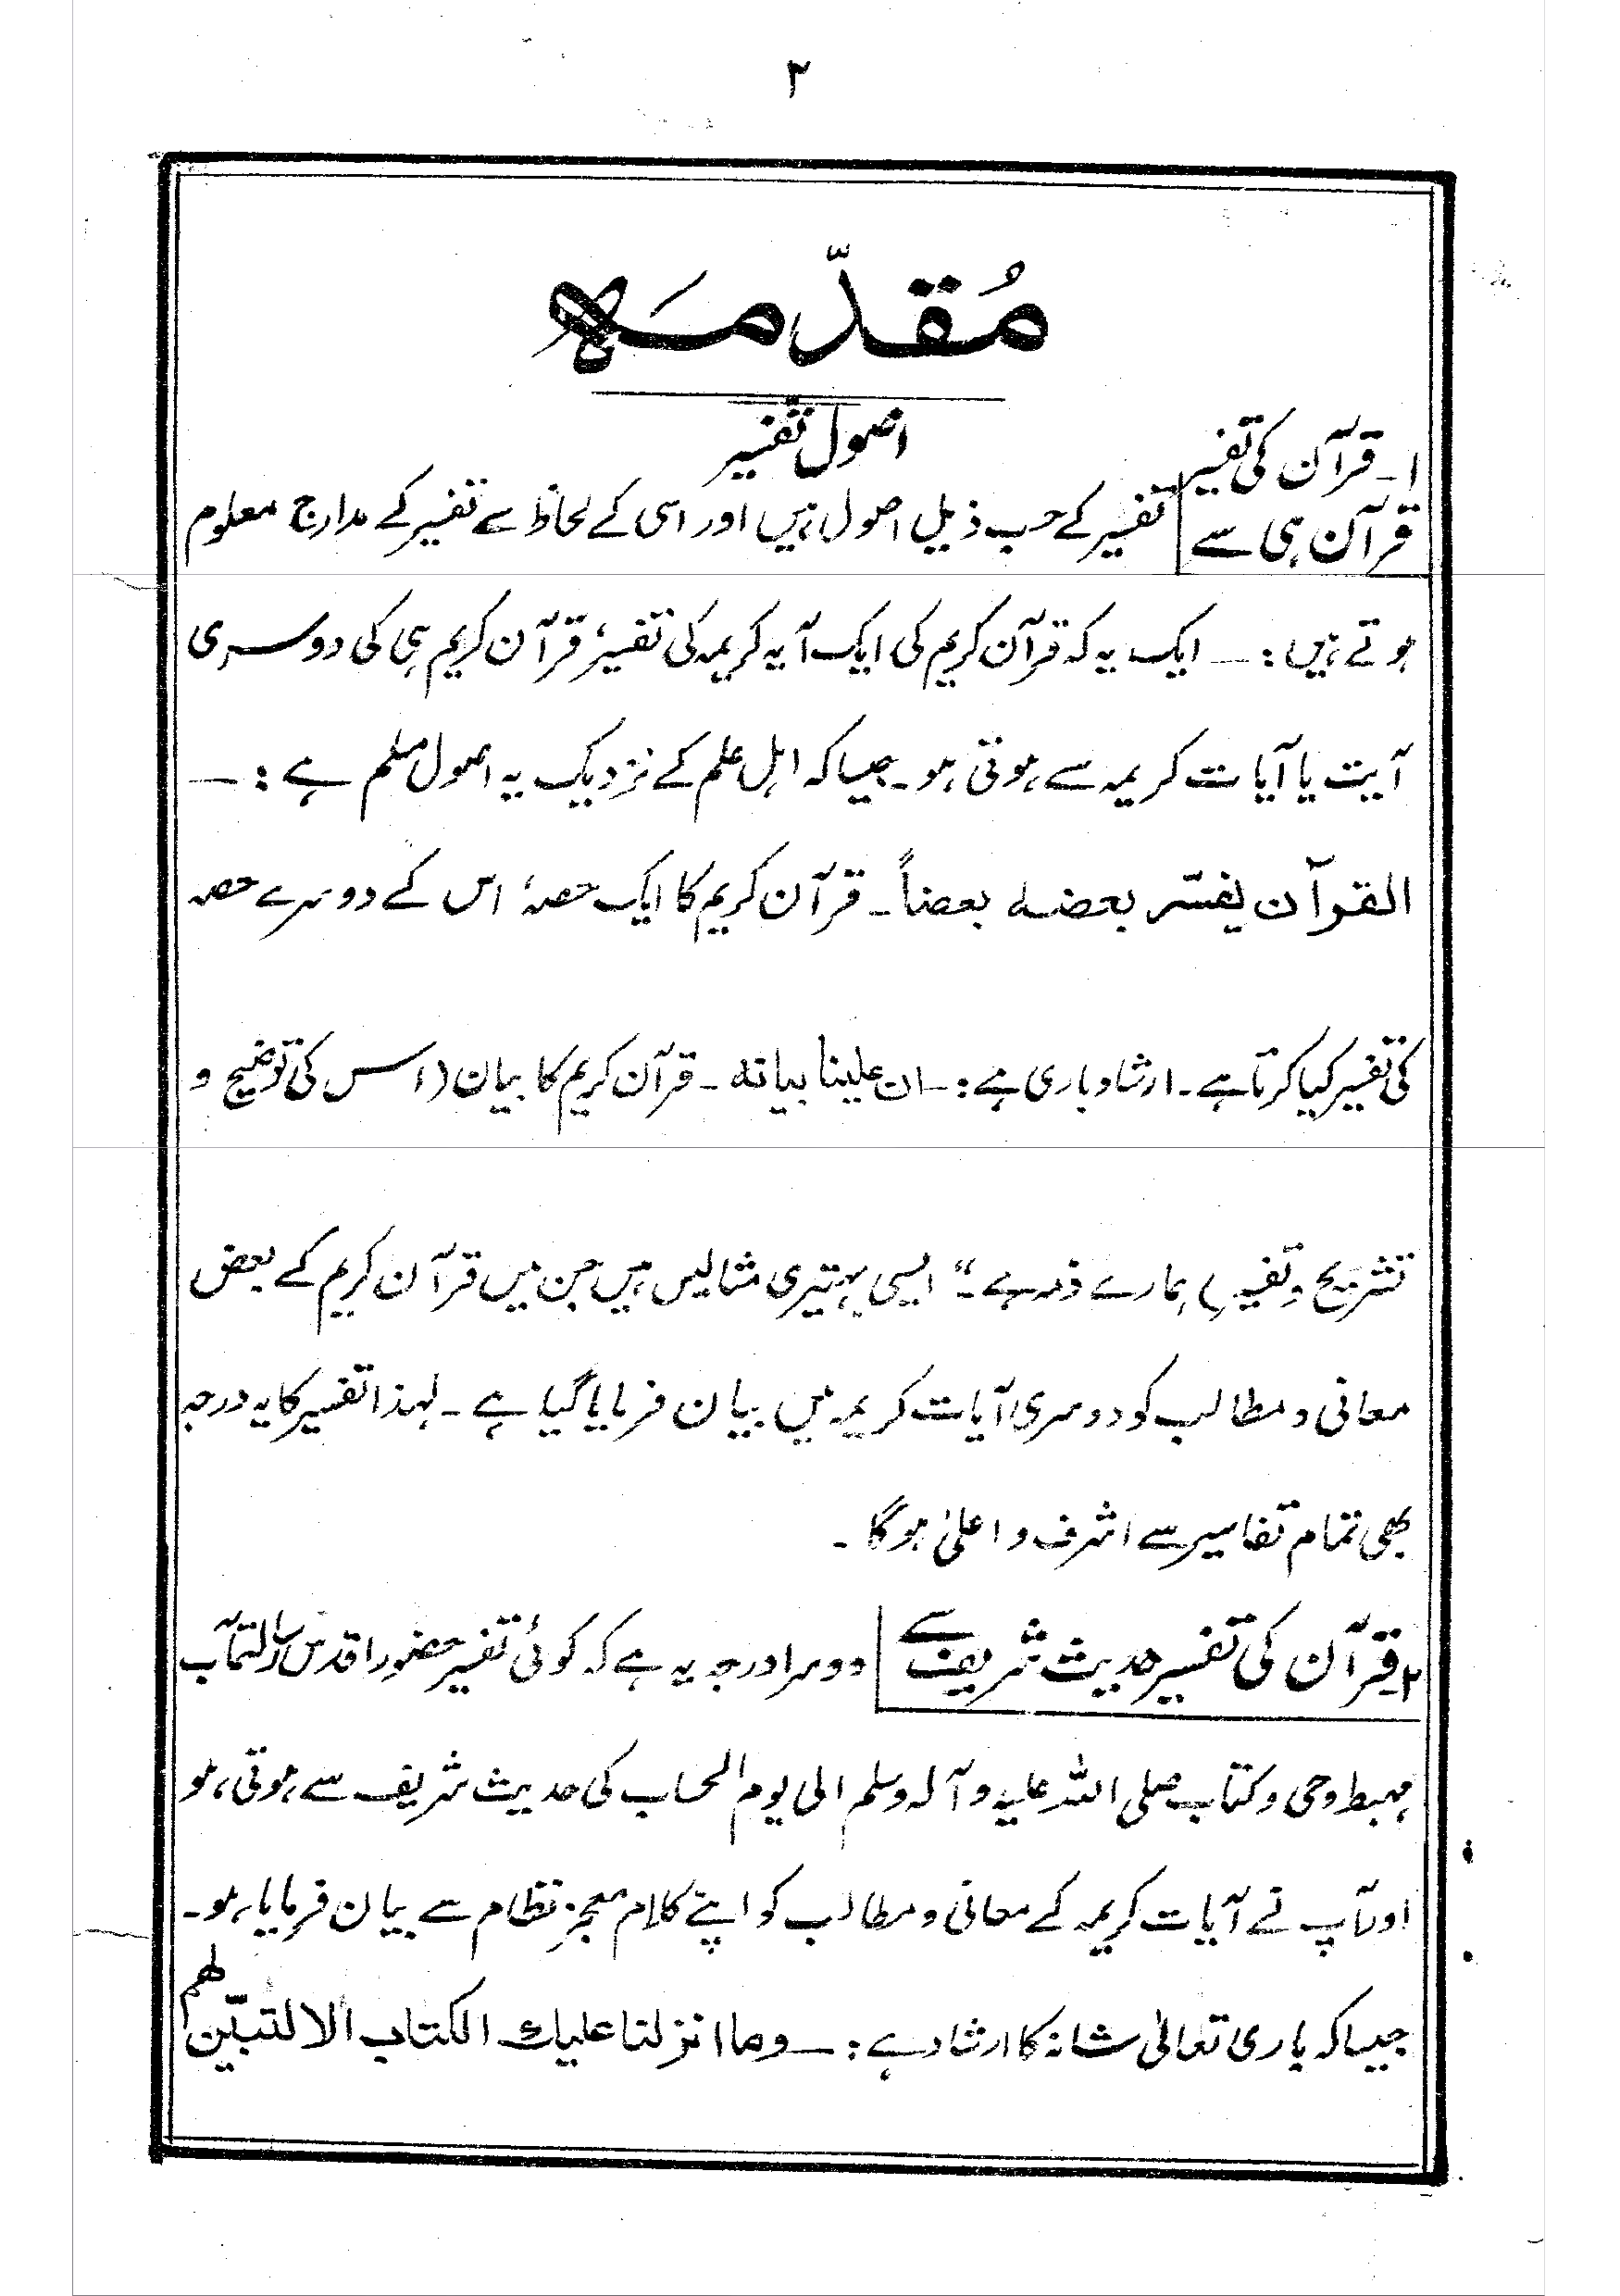 ۲
مُقدّمَہ
اصول تفسیر
۱۔ قرآن کی تفسیر
قرآن ہی سے
تفسیر کے حسب ذیل اصول ہیں اور اسی کے لحاظ سے تفسیر کے مدارج معلوم
ہوتے ہیں :۔ ایک یہ کہ قرآن کریم کی ایک آیہ کریمہ کی تفسیر، قرآن کریم ہی کی دوسری
آیت یا آیات کریمہ سے ہوتی ہو۔ جیسا کہ اہل علم کے نزدیک یہ اصول مسلم ہے :۔
القرآن یفسّر بعضہ بعضاً۔ قرآن کریم کا ایک حصہ، اس کے دوسرے حصہ
کی تفسیر کیا کرتا ہے۔ ارشاد باری ہے :۔ ان علینا بیانه۔ قرآن کریم کا بیان (اس کی توضیح و
تشریح و تفسیر) ہمارے ذمہ ہے۔“ ایسی بہتیری مثالیں ہیں جن میں قرآن کریم کے بعض
معانی و مطالب کو دوسری آیات کریمہ میں بیان فرمایا گیا ہے۔ لہذا تفسیر کا یہ درجہ
بھی تمام تفاسیر سے اشرف و اعلیٰ ہوگا۔
۲۔ قرآن کی تفسیر حدیث شریف سے
دوسرا درجہ یہ ہے کہ کوئی تفسیر حضور اقدس رسالتمآب
مہبط وحی و کتاب صلی اللہ علیہ و آلہ وسلم الی یوم الحساب کی حدیث شریف سے ہوتی ہو
اور آپ نے آیات کریمہ کے معانی و مطالب کو اپنے کلام معجز نظام سے بیان فرمایا ہو۔
جیسا کہ باری تعالیٰ شانہ کا ارشاد ہے :۔ وما انزلنا علیك الکتاب الا لتبیّن لھم